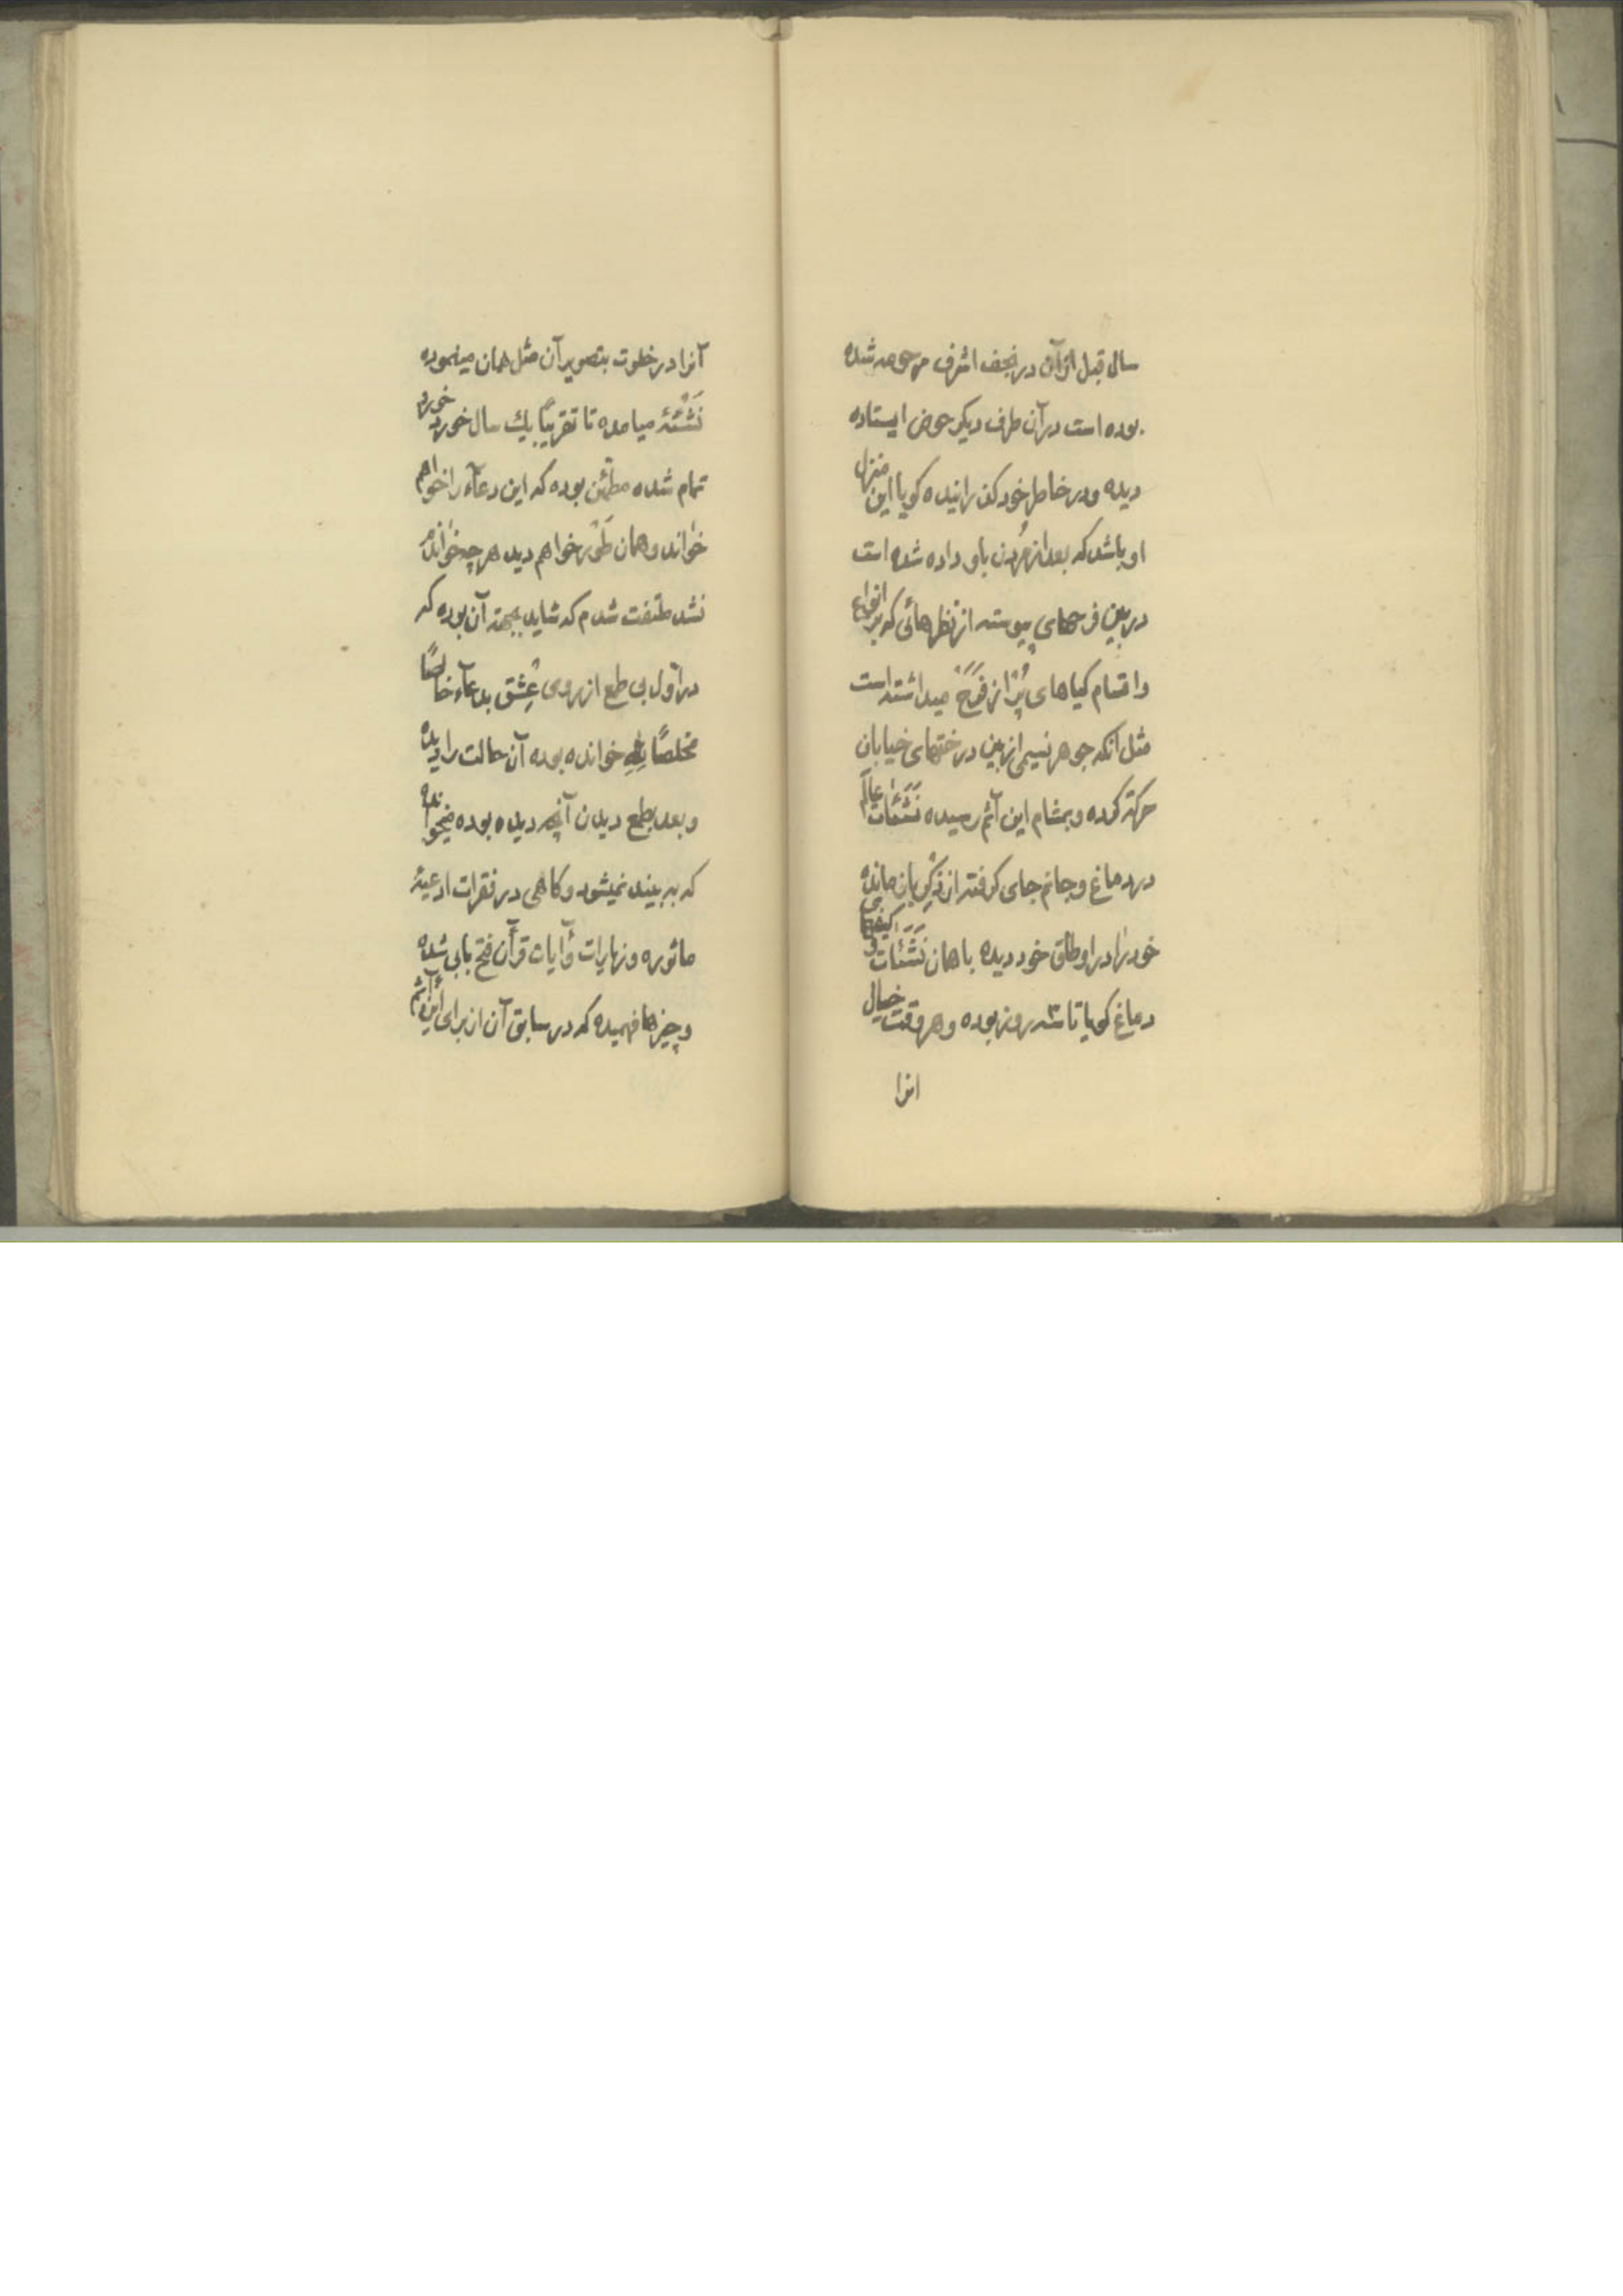 سال قبل از آن در نجف اشرف مرحومه شده
بوده است در آن طرف دیکر حوض ایستاده
دیده و در خاطر خود کذرانیده کویا این منزل
او باشد که بعد از مُردن باو داده شده است
در بین فرحهای پیوسته از نظرهائی که بر انواع
واقسام کیاهای پُر از فَرَح میداشته است
مثل آنکه جوهر نسیمی از بین درختهای خیابان
حرکة کرده و بمشام این آثم رسیده نَشَئَات عالَم
در دماغ و جانم جای کرفته از ذِکرِ بازمانده
خود را در اوطاق خود دیده با همان نَشَئَات و کیفهای
دماغ کویا تا سه روز بوده و هر وقت خیال
انرا
آنرا در خلوت بتصویر آن مثل همان مینموده
نَشْئَه میامده تا تقریبًا یك سال خورد خورد
تمام شده مطمئن بوده که این دعآء را خواهم
خواند و همان طَوْر خواهم دید هرچه خوانده
نشد ملتفت شدم که شاید بجهة آن بوده که
در اوّل بی طمع از روی عِشْق بدعآء خالصًا
مخلصًا لِلّٰهِ خوانده بوده آن حالت را دیده
و بعد بطمع دیدن آنچه دیده بوده میخوانده
که به بیند نمیشود و کاهی در فقرات ادعیهٔ
ماثوره و زیارات و آیات قرآن فتح بابی شده
و چیزها فهمیده که در سابق آن از برای این آثم